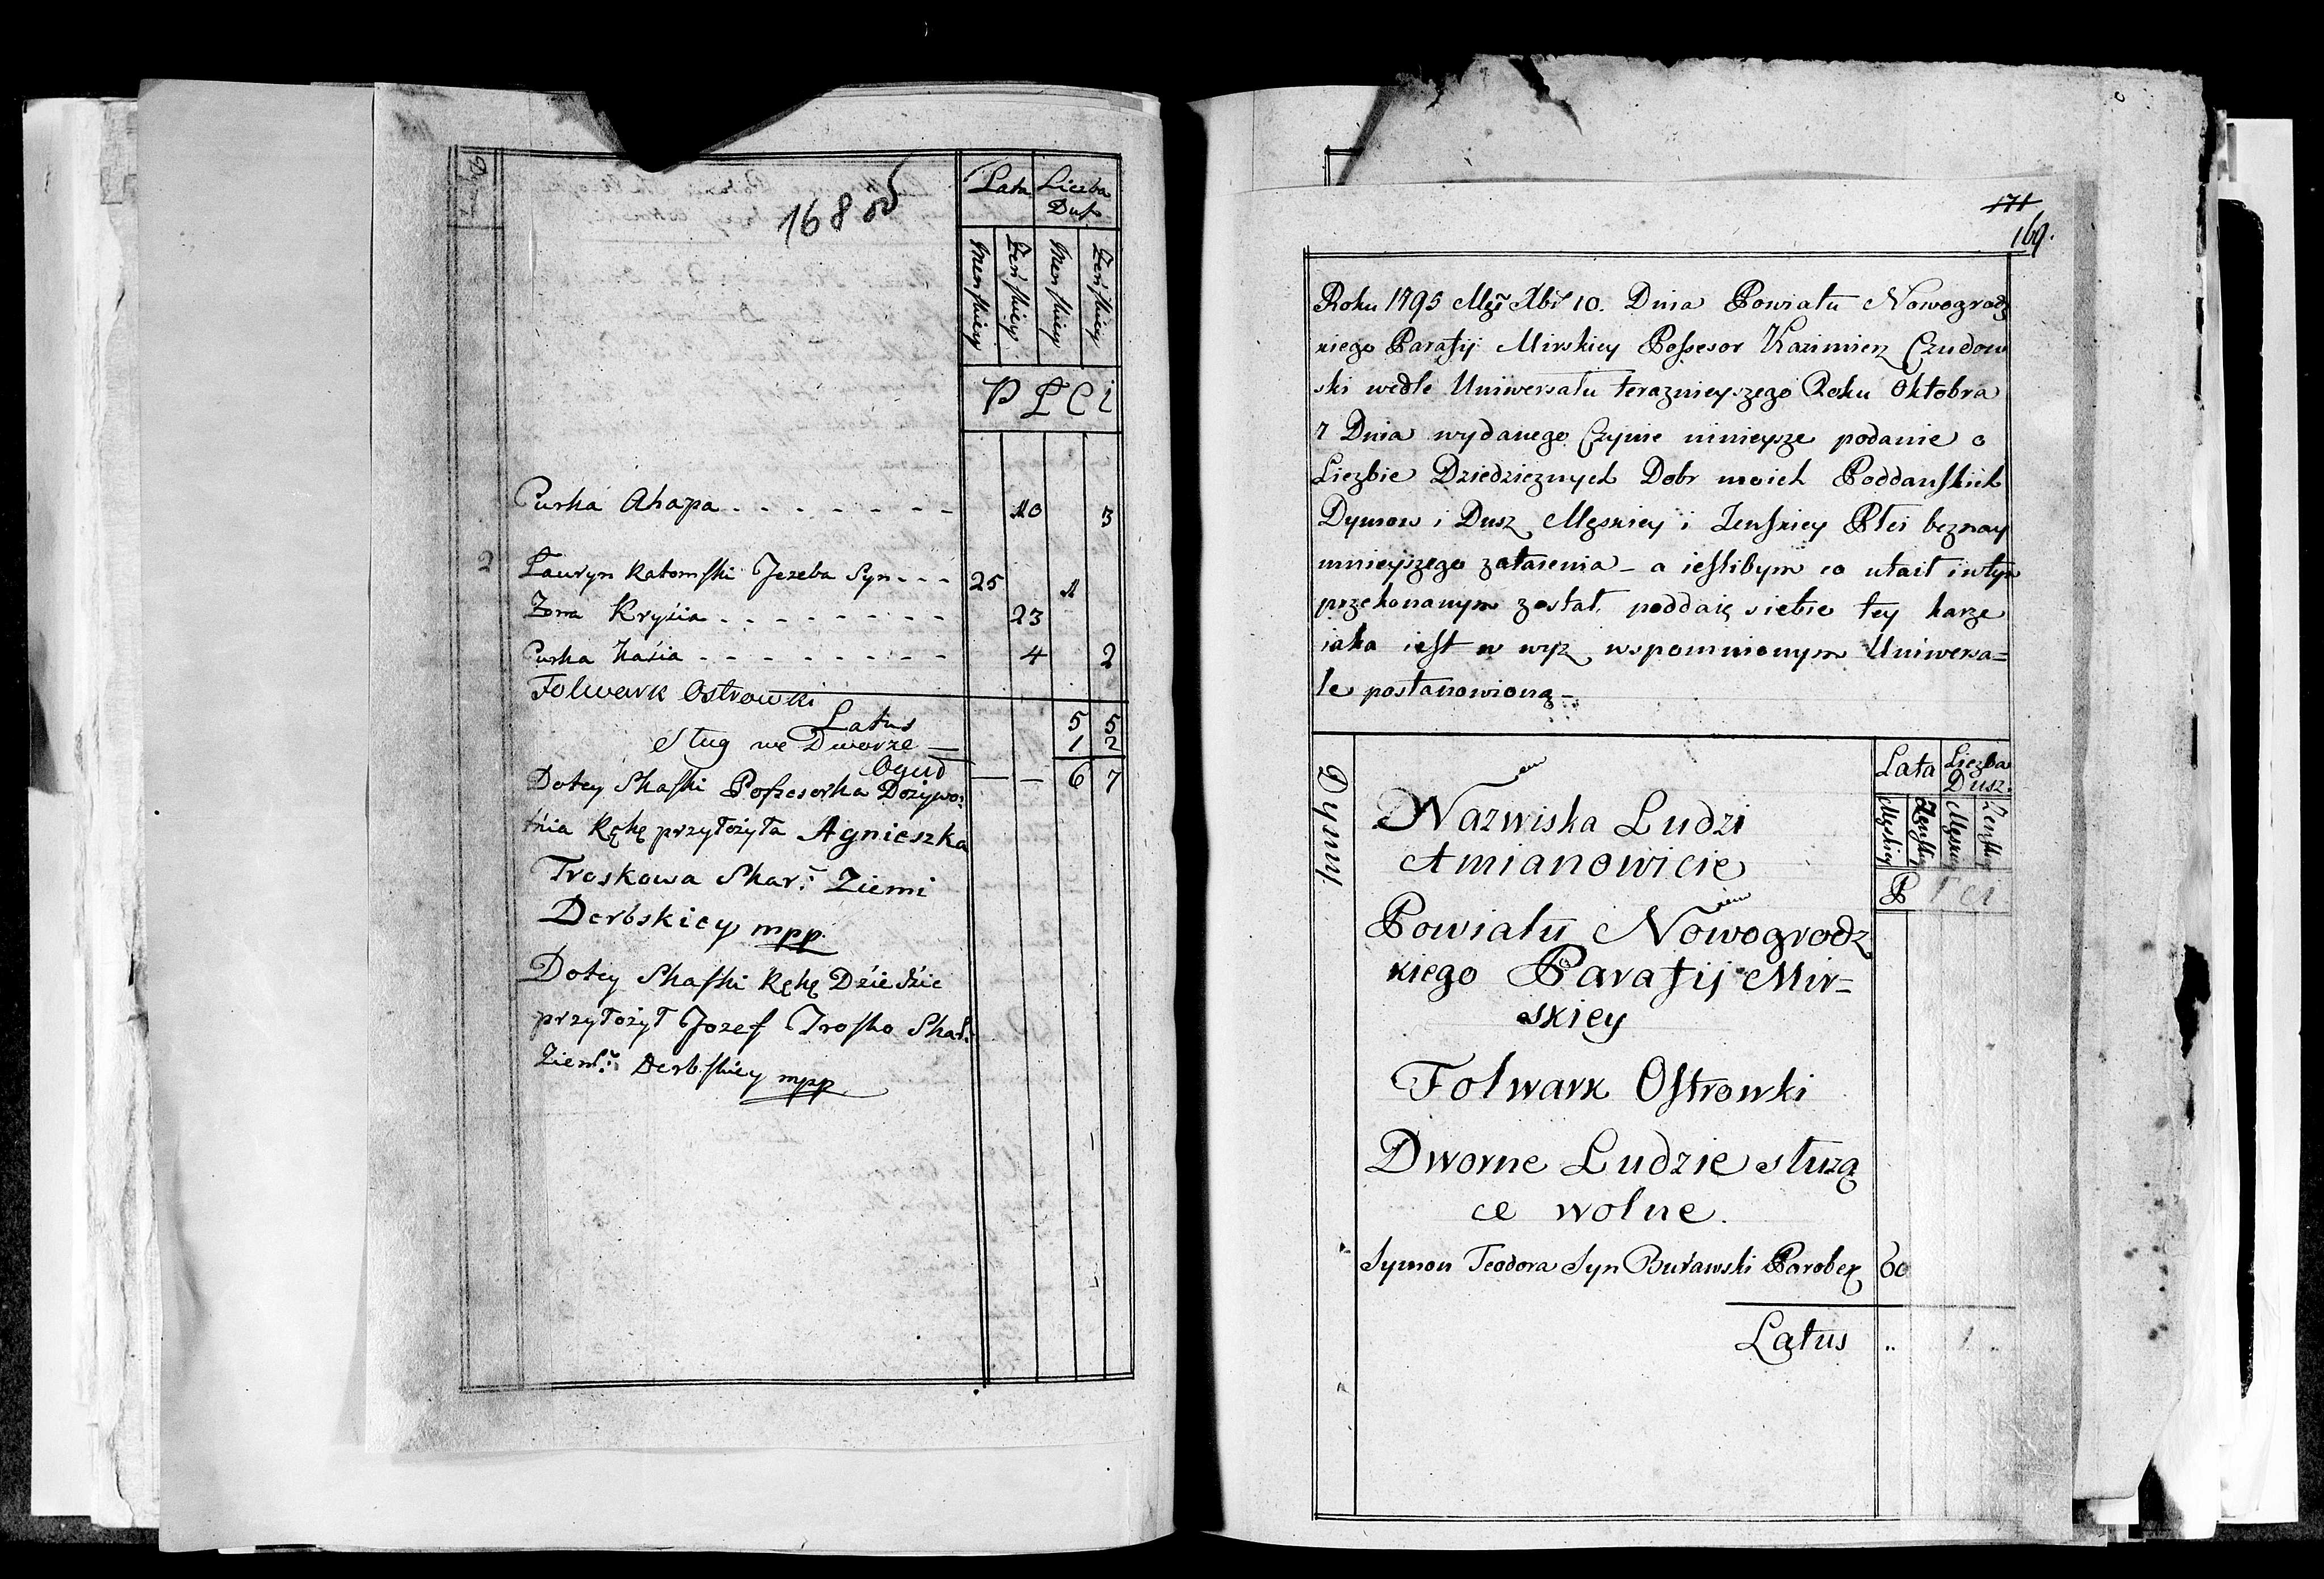 168 об
Dymy
Lata Liczba
Dusz
Męnskiey Żeńskiey Męnskiey Żeńskiey
P Ł C i
Curka Ahapa - - - - - - - 10 3
2 Lauryn Katomski Jezeba Syn - - - 25 1
Zona Krysia - - - - - - - - 23
Curka Kasia - - - - - - - - 4 2
Folwark Ostrowki
Latus 5 5
Sług we Dworze — 1 2
Ogud — — 6 7
Dotey Skaski Possesorka Dożywo:
tnia Rękę przyłożyła Agnieszka
Troskowa Skar: Ziemi
Derbskiey mpp
Dotey Skaski Rękę Dziedzic
przyłożył Jozef Trosko Skar:
Ziem: Derbskiey mpp
171
169.
Roku 1795 Mżs Xbr 10. Dnia Powiatu Nowogrodz
kiego Parafij Mirskiey Possesor Kazimierz Czudow
ski wedle Uniwersału teraznieyszego Roku Oktobra
7 Dnia wydanego Czynie ninieysze podanie o
Liczbie Dziedzicznych Dobr moich Poddanskich
Dymow i Dusz Męskiey i Zenskiey Płci beznay
mnieyszego zataienia - a iesliby̅m co utaił i wtym
przekonanym został, poddaię siebie tey karze
iaka iest w wyz wspomnionym Uniwersa=
le postanowioną -
Dymy
Nazwiska Ludzi
Amianowicie
Lata Liczba
Dusz.
Męskiey Zenskiey Męskiey Zenskiey
P Ł C i
Powiatu Nowogrodz
kiego Parafij Mir=
skiey
Folwark Ostrowki
Dworne Ludzie służą
ce wolne.
Symon Teodora Syn Buławski Parobek 60
Latus .. 1 ..